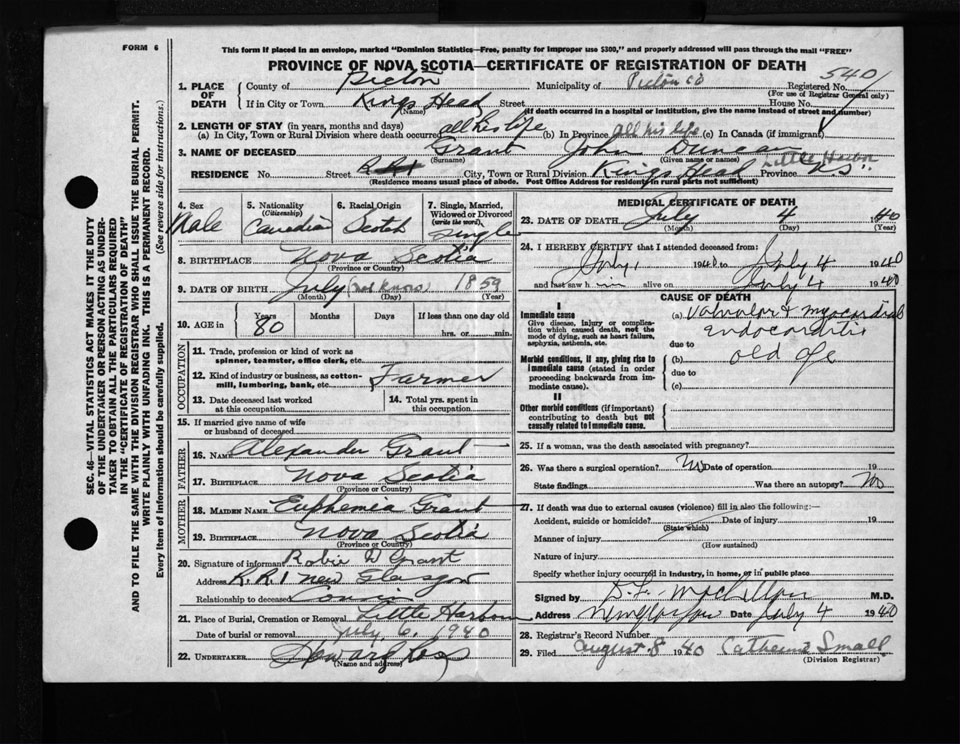 FORM 6
This form if placed in an envelope, marked "Dominion Statistics—Free, penalty for improper use $300," and properly addressed will pass through the mail "FREE"
PROVINCE OF NOVA SCOTIA—CERTIFICATE OF REGISTRATION OF DEATH
SEC. 46—VITAL STATISTICS ACT MAKES IT THE DUTY
OF THE UNDERTAKER OR PERSON ACTING AS UNDER-
TAKER TO OBTAIN ALL THE PARTICULARS REQUIRED
IN THE "CERTIFICATE OF REGISTRATION OF DEATH"
AND TO FILE THE SAME WITH THE DIVISION REGISTRAR WHO SHALL ISSUE THE BURIAL PERMIT.
WRITE PLAINLY WITH UNFADING INK. THIS IS A PERMANENT RECORD.
Every item of Information should be carefully supplied. (See reverse side for instructions.)
1. PLACE OF DEATH County of Pictou Municipality of Pictou Co Registered No. 540
(For use of Registrar General only)
If in City or Town Kings Head Street House No.
(Name) (If death occurred in a hospital or institution, give the name instead of street and number)
2. LENGTH OF STAY (in years, months and days)
(a) In City, Town or Rural Division where death occurred all his life (b) In Province all his life (c) In Canada (if immigrant)
3. NAME OF DECEASED Grant John Duncan
(Surname) (Given name or names)
RESIDENCE No. Street City, Town or Rural Division Kings Head Little Harbor Province N.S.
(Residence means usual place of abode. Post Office Address for residents in rural parts not sufficient)
4. Sex Male
5. Nationality (Citizenship) Canadian
6. Racial Origin Scotch
7. Single, Married, Widowed or Divorced (write the word) Single
8. BIRTHPLACE Nova Scotia
(Province or Country)
9. DATE OF BIRTH July (not known) 1859
(Month) (Day) (Year)
10. AGE in Years 80 Months Days If less than one day old
hrs. or min.
OCCUPATION
11. Trade, profession or kind of work as spinner, teamster, office clerk, etc.
12. Kind of industry or business, as cotton-mill, lumbering, bank, etc. Farmer
13. Date deceased last worked at this occupation
14. Total yrs. spent in this occupation
15. If married give name of wife or husband of deceased
FATHER
16. NAME Alexander Grant
17. BIRTHPLACE Nova Scotia
(Province or Country)
MOTHER
18. MAIDEN NAME Euphemia Grant
19. BIRTHPLACE Nova Scotia
(Province or Country)
20. Signature of informant Robie D Grant
Address R.R.1 New Glasgow
Relationship to deceased Cousin
21. Place of Burial, Cremation or Removal Little Harbour
Date of burial or removal July 6, 1940
22. UNDERTAKER
(Name and address)
MEDICAL CERTIFICATE OF DEATH
23. DATE OF DEATH July 4 1940
(Month) (Day) (Year)
24. I HEREBY CERTIFY that I attended deceased from:
July 1 1940 to July 4 1940
and last saw him alive on July 4 1940
CAUSE OF DEATH
I
Immediate cause
Give disease, injury or complication which caused death, not the mode of dying, such as heart failure, asphyxia, asthenia, etc.
(a) Valvular & myocardial
Endocarditis
due to
Morbid conditions, if any, giving rise to immediate cause (stated in order proceeding backwards from immediate cause)
(b) old age
due to
(c)
II
Other morbid conditions (if important) contributing to death but not causally related to immediate cause.
25. If a woman, was the death associated with pregnancy?
26. Was there a surgical operation? No Date of operation 19
State findings Was there an autopsy? No
27. If death was due to external causes (violence) fill in also the following:—
Accident, suicide or homicide? Date of injury 19
(State which)
Manner of injury
(How sustained)
Nature of injury
Specify whether injury occurred in industry, in home, or in public place
Signed by M.D.
Address New Glasgow Date July 4 1940
28. Registrar's Record Number
29. Filed August 8 1940 Catherine Small
(Division Registrar)